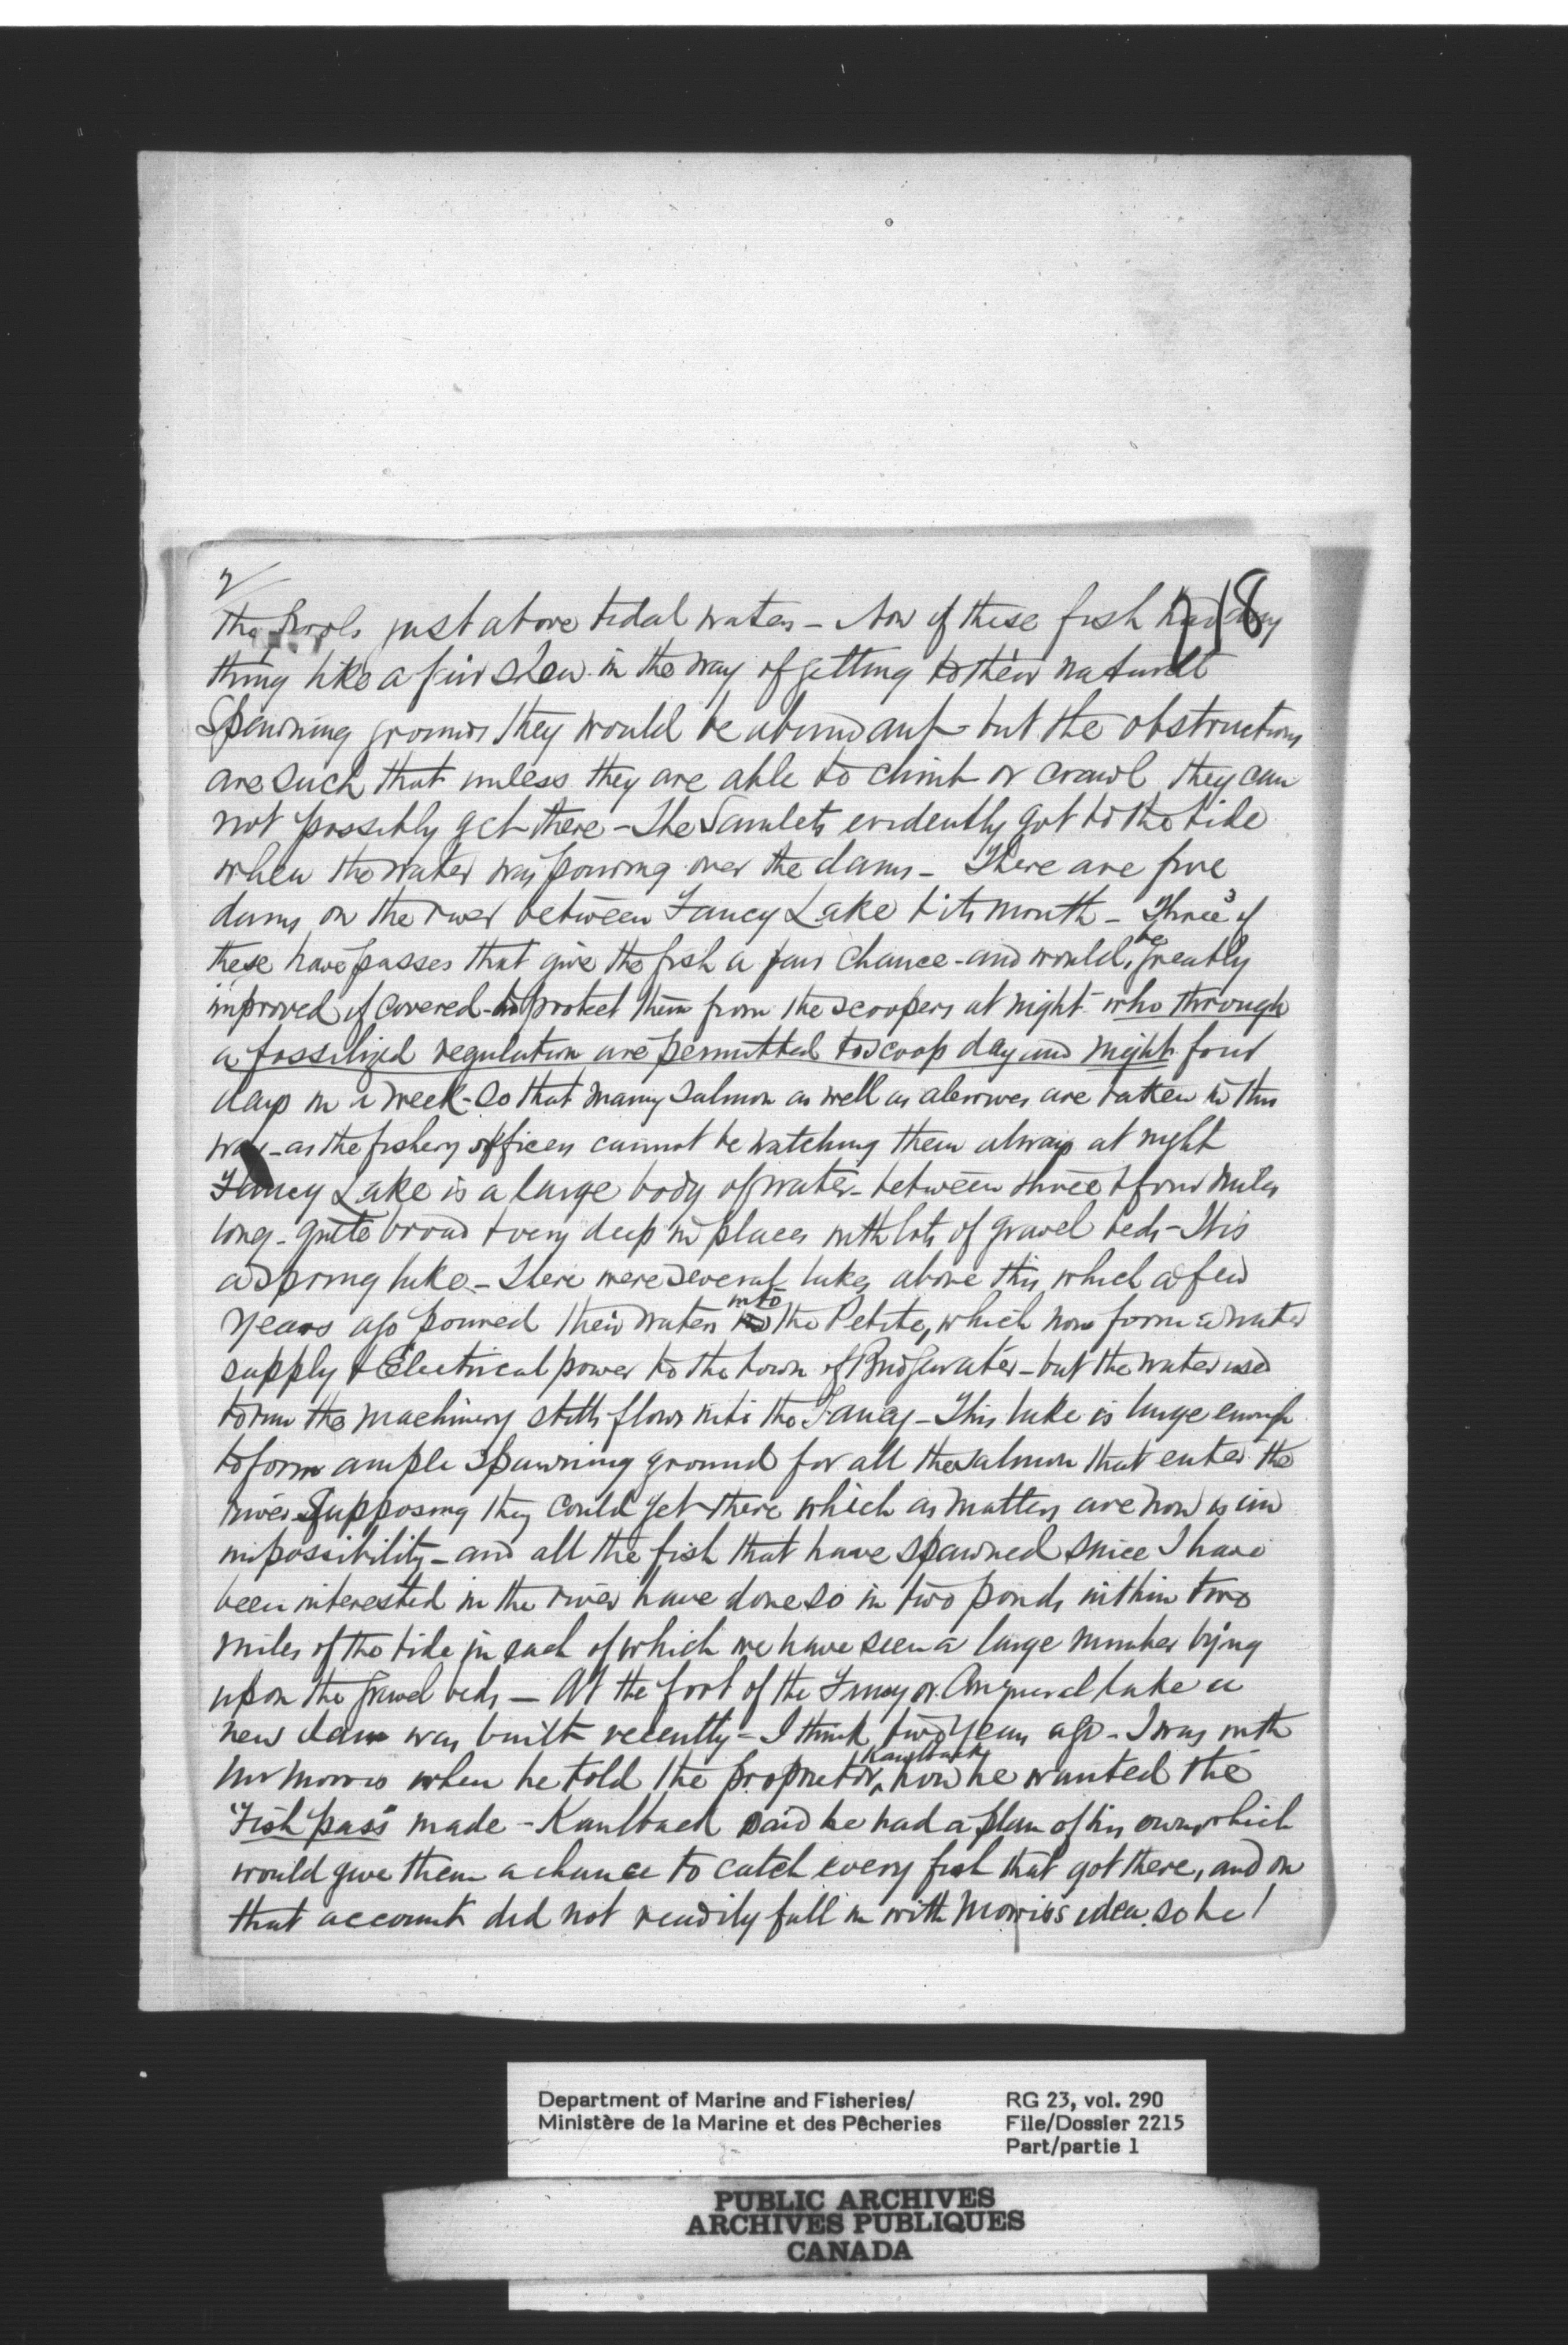 2/
718
the pools just above tidal water - Now if these fish had any
thing like a fair show in the way of getting to their natural
Spawning grounds they would be abundant - but the obstructions
are such that unless they are able to climb or crawl they can
not possibly get there - The Samlets evidently got to the tide
when the water was pouring over the dams - There are five
dams on the river between Fancy Lake & its mouth - Three 3 of
these have passes that give the fish a fair chance - and would be greatly
improved if covered - to protect them from the scoopers at night - who through
a fossilized regulation are permitted to scoop day and night four
days in a week - so that many salmon as well as alewives are taken in this
way - as the fishery officers cannot be watching them always at night
Fancy Lake is a large body of water - between three & four miles
long - quite broad & very deep in places with lots of gravel beds - It is
a spring lake - There were several lakes above this which a few
years ago poured their waters into the Petite, which now form a water
supply & Electrical power to the town of Bridgewater - but the water used
to run the machinery still flows into the Fancy - This lake is large enough
to form ample spawning ground for all the salmon that enter the
river Supposing they could get there which as matters are now is an
impossibility - and all the fish that have spawned since I have
been interested in the river have done so in two ponds within two
miles of the tide in each of which we have seen a large number lying
upon the gravel beds - At the foot of the Fancy or lake a
new dam was built recently - I think two years ago - I was with
Mr Morris when he told the proprietor Kaulback, how he wanted the
"Fish pass" made - Kaulback said he had a plan of his own, which
would give them a chance to catch every fish that got there, and on
that account did not readily fall in with Morris's idea. so he!
Department of Marine and Fisheries/
Ministère de la Marine et des Pêcheries
RG 23, vol. 290
File/Dossier 2215
Part/partie 1
PUBLIC ARCHIVES
ARCHIVES PUBLIQUES
CANADA